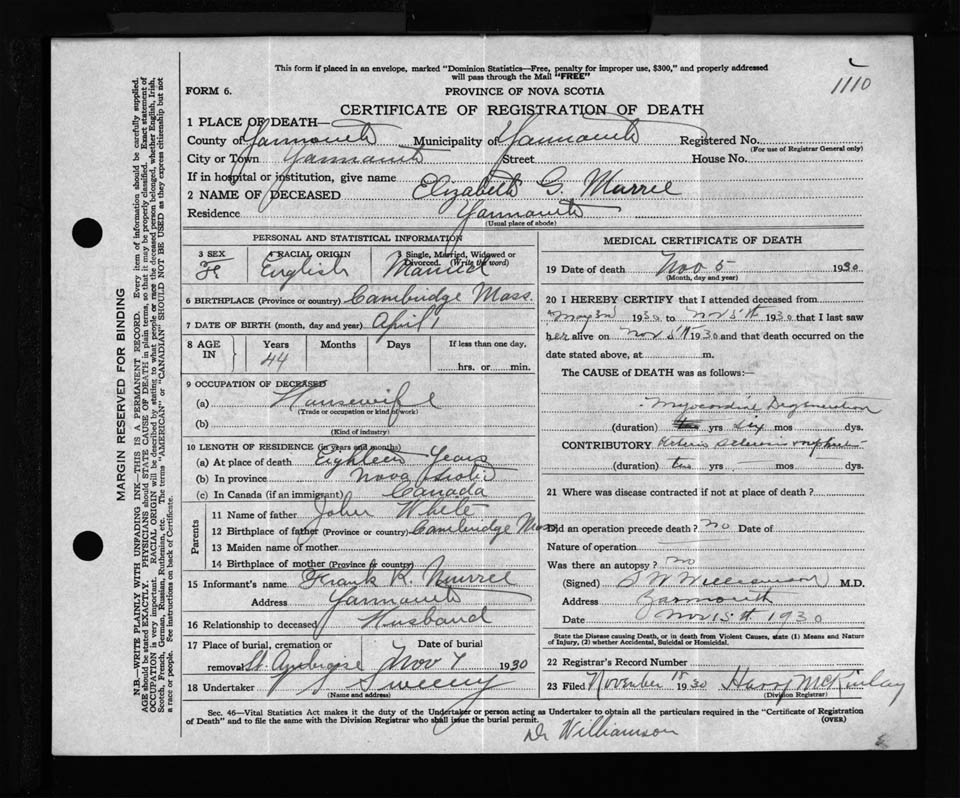 This form if placed in an envelope, marked "Dominion Statistics—Free, penalty for improper use, $300," and properly addressed
will pass through the Mail "FREE"
1110
FORM 6.
PROVINCE OF NOVA SCOTIA
CERTIFICATE OF REGISTRATION OF DEATH
1 PLACE OF DEATH—
County of Yarmouth Municipality of Yarmouth Registered No.
(For use of Registrar General only)
City or Town Yarmouth Street House No.
If in hospital or institution, give name
2 NAME OF DECEASED Elizabeth G. Murree
Residence Yarmouth
(Usual place of abode)
PERSONAL AND STATISTICAL INFORMATION
3 SEX 4 RACIAL ORIGIN 5 Single, Married, Widowed or
Divorced. (Write the word)
Fe English Married
6 BIRTHPLACE (Province or country) Cambridge Mass.
7 DATE OF BIRTH (month, day and year) April 1
8 AGE IN Years Months Days If less than one day,
44 hrs. or min.
9 OCCUPATION OF DECEASED
(a) Housewife
(Trade or occupation or kind of work)
(b)
(Kind of industry)
10 LENGTH OF RESIDENCE (in years and months)
(a) At place of death Eighteen Years
(b) In province Nova Scotia
(c) In Canada (if an immigrant) Canada
Parents
11 Name of father John White
12 Birthplace of father (Province or country) Cambridge Mass
13 Maiden name of mother
14 Birthplace of mother (Province or country)
15 Informant's name Frank R. Murree
Address Yarmouth
16 Relationship to deceased Husband
17 Place of burial, cremation or Date of burial
removal St. Ambrose Nov 7 1930
18 Undertaker Sweeny
(Name and address)
MEDICAL CERTIFICATE OF DEATH
19 Date of death Nov 5 1930
(Month, day and year)
20 I HEREBY CERTIFY that I attended deceased from
May 1930 to Nov 5th 1930 that I last saw
her alive on Nov 5th 1930 and that death occurred on the
date stated above, at m.
The CAUSE of DEATH was as follows:—
Myocardial Degeneration
(duration) yrs six mos dys.
CONTRIBUTORY Arterio sclerosis
(duration) two yrs mos dys.
21 Where was disease contracted if not at place of death?
Did an operation precede death? no Date of
Nature of operation
Was there an autopsy? no
(Signed) S W Williamson M.D.
Address Yarmouth
Date Nov 15th 1930
State the Disease causing Death, or in death from Violent Causes, state (1) Means and Nature
of Injury, (2) whether Accidental, Suicidal or Homicidal.
22 Registrar's Record Number
23 Filed November 18 1930 Harry McKinlay
(Division Registrar)
Sec. 46—Vital Statistics Act makes it the duty of the Undertaker or person acting as Undertaker to obtain all the particulars required in the "Certificate of Registration
of Death" and to file the same with the Division Registrar who shall issue the burial permit. (OVER)
Dr Williamson
MARGIN RESERVED FOR BINDING
N.B.—WRITE PLAINLY WITH UNFADING INK—THIS IS A PERMANENT RECORD. Every item of information should be carefully supplied.
AGE should be stated EXACTLY. PHYSICIANS should STATE CAUSE OF DEATH in plain terms, so that it may be properly classified. Exact statement of
OCCUPATION is very important. RACIAL ORIGIN will be described by stating to what people or race the deceased person belonged, whether English, Irish,
Scotch, French, German, Russian, Ruthenian, etc. The terms "AMERICAN" or "CANADIAN" SHOULD NOT BE USED as they express citizenship but not
a race or people. See instructions on back of Certificate.